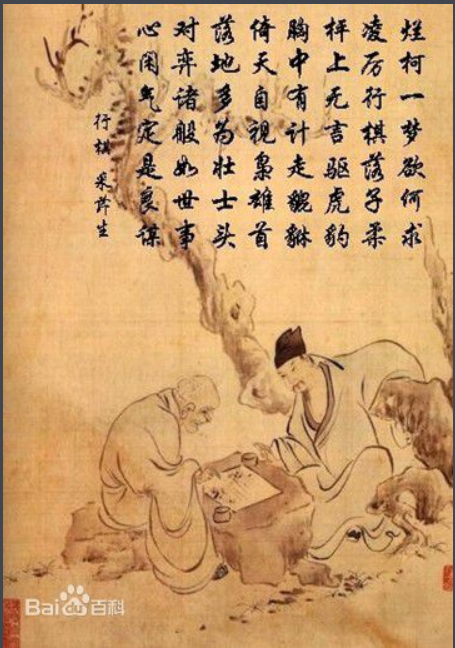 烂柯一梦欲何求
凌厉行棋落子柔
枰上无言驱虎豹
胸中有计走貔貅
倚天自视枭雄首
落地多为壮士头
对弈诸般如世事
心闲气定是良谋
行棋 采薛生
Bai du 百科